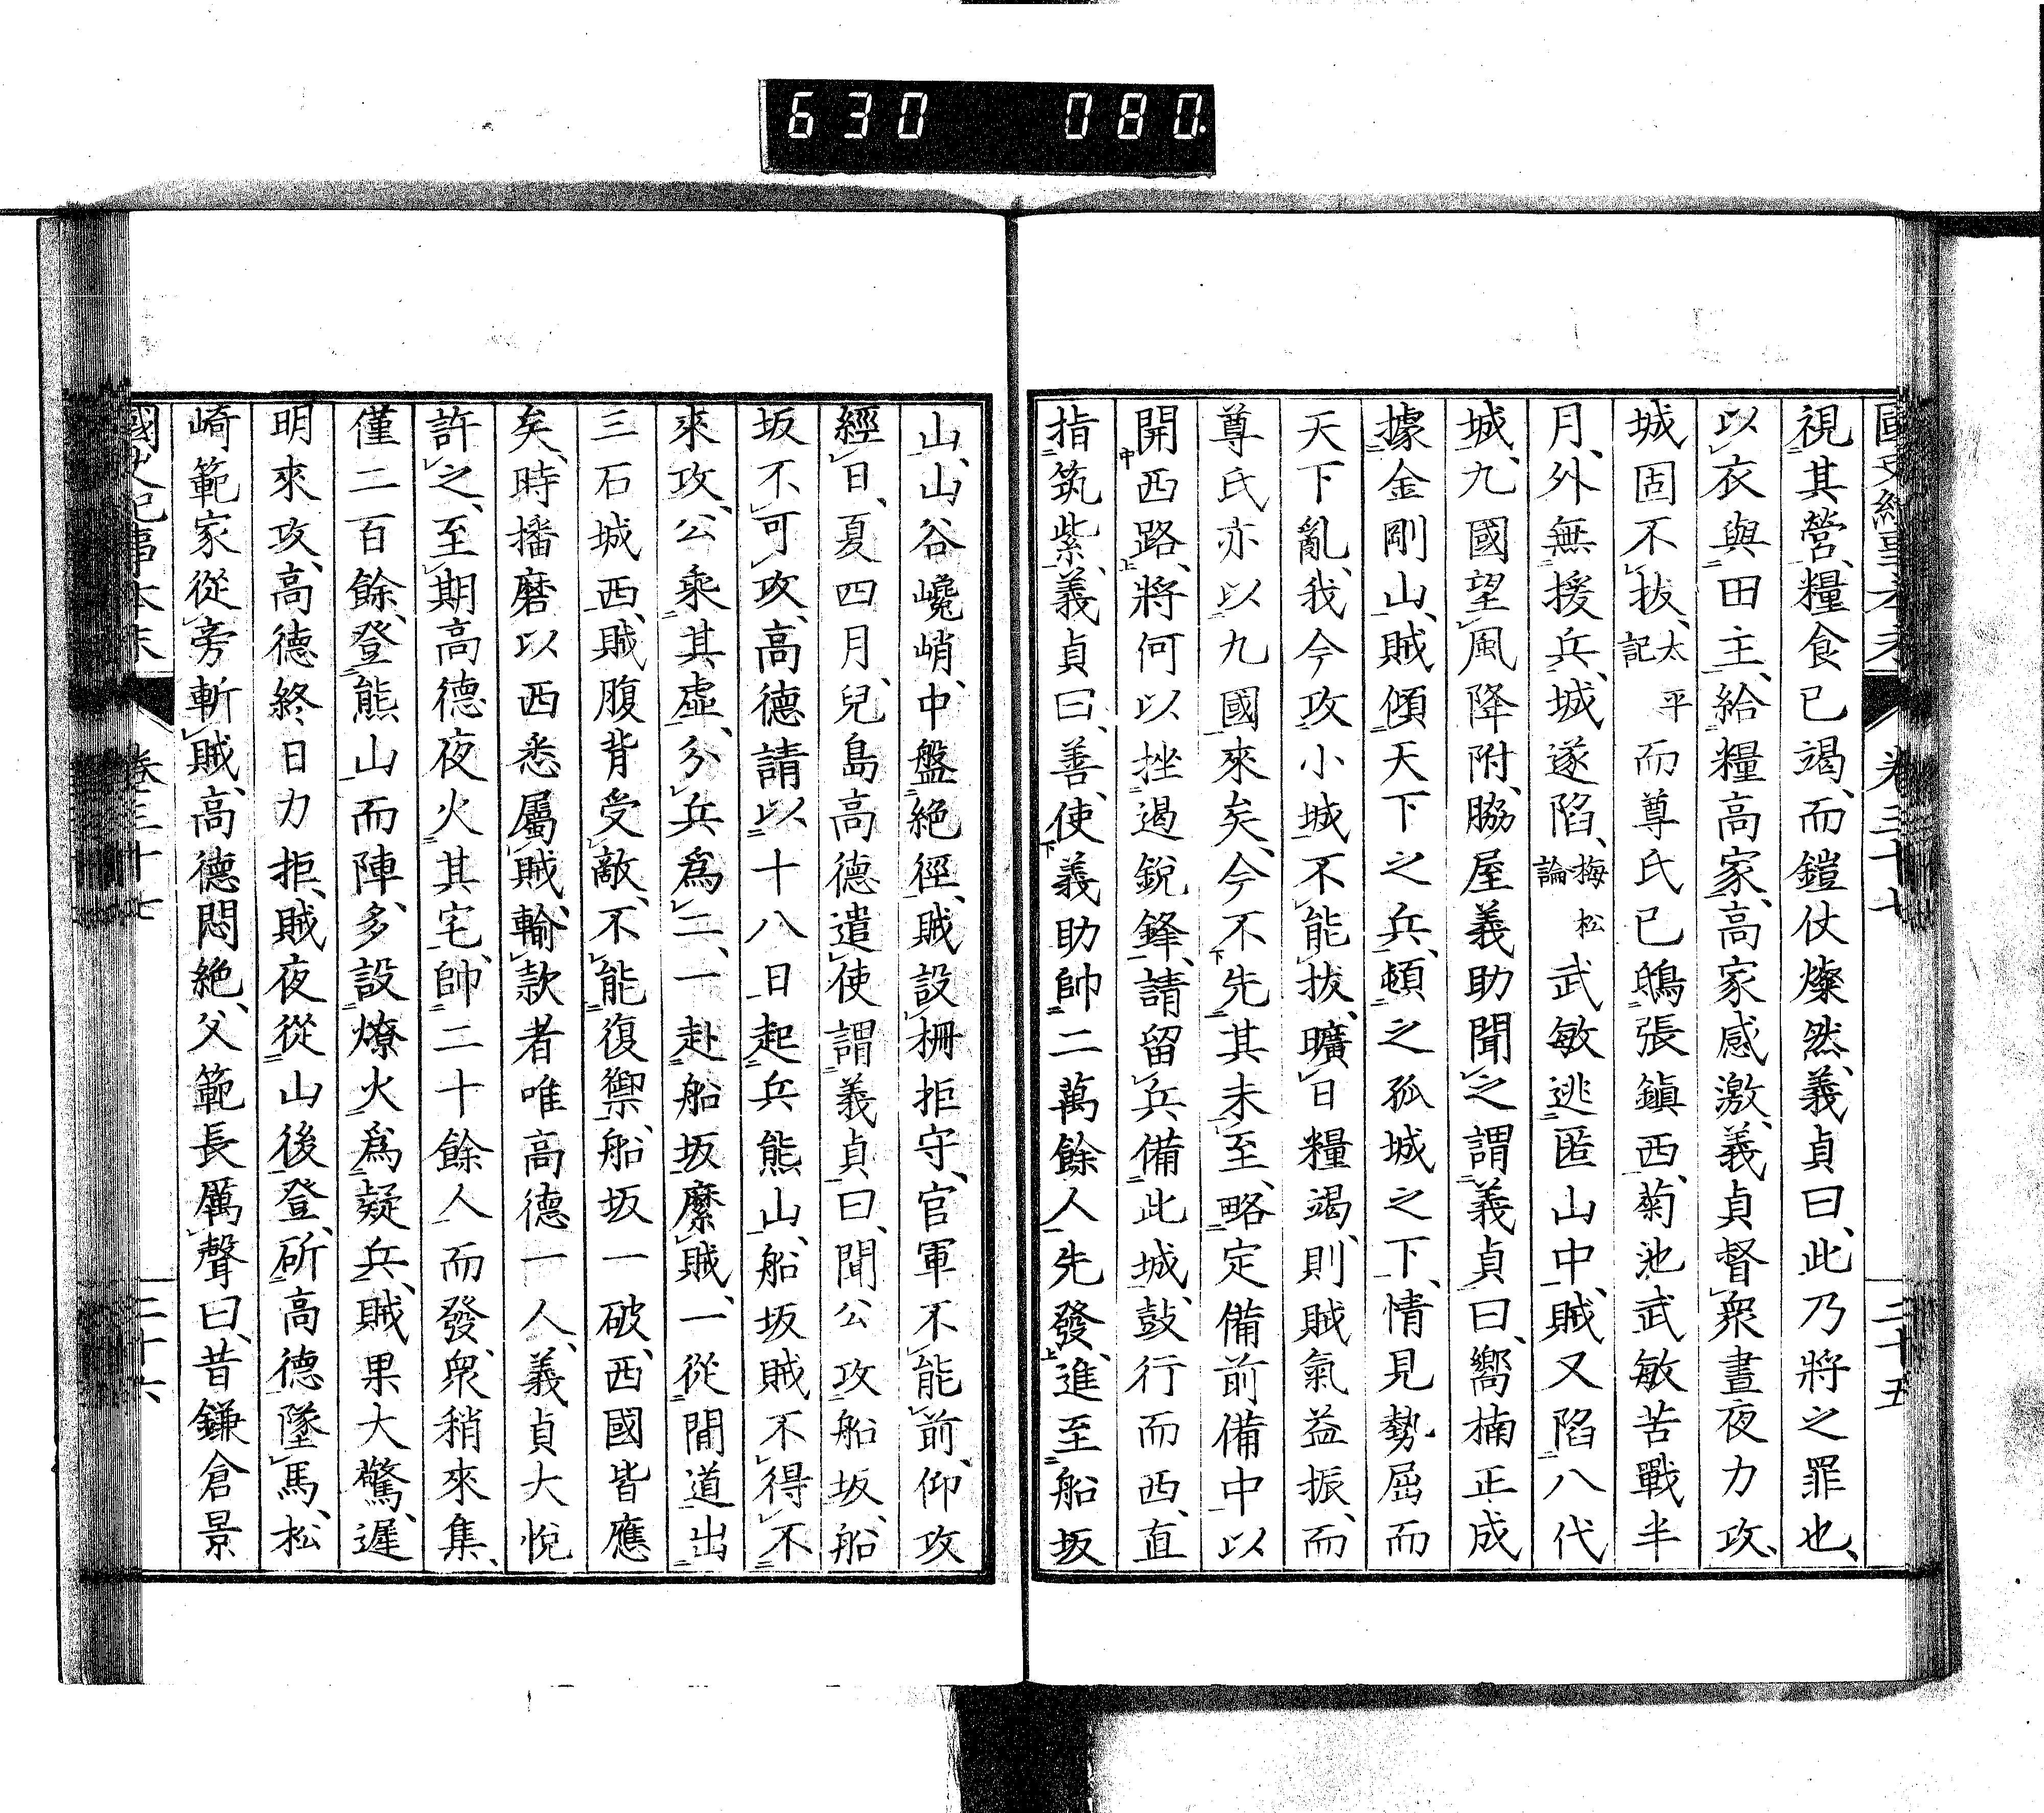 630 080
視其營、糧食已竭、而鎧仗燦然、義貞曰、此乃將之罪也、
以衣與田主、給糧高家、高家感激、義貞督衆晝夜力攻、
城固不拔、太平記 而尊氏已鴟張鎭西、菊池武敏苦戰半
月、外無援兵、城遂陷、梅松論 武敏逃匿山中、賊又陷八代
城、九國望風降附、脇屋義助聞之、謂義貞曰、嚮楠正成
據金剛山、賊傾天下之兵、頓之孤城之下、情見勢屈而
天下亂、我今攻小城不能拔、曠日糧竭、則賊氣益振、而
尊氏亦以九國來矣、今不先其未至、略定備前備中以
開西路、將何以挫遏銳鋒、請留兵備此城、鼓行而西、直
指筑紫、義貞曰、善、使義助帥二萬餘人先發、進至船坂
山、山谷巉峭、中盤絶徑、賊設柵拒守、官軍不能前、仰攻
經日、夏四月、兒島高德遣使謂義貞曰、聞公攻船坂、船
坂不可攻、高德請以十八日起兵熊山、船坂賊不得不
來攻、公乘其虛、分兵爲二、一赴船坂縻賊、一從間道出
三石城西、賊腹背受敵、不能復禦、船坂一破、西國皆應
矣、時播磨以西悉屬賊、輸款者唯高德一人、義貞大悅
許之、至期高德夜火其宅、帥二十餘人而發、衆稍來集、
僅二百餘、登熊山而陣、多設燎火爲疑兵、賊果大驚、遲
明來攻、高德終日力拒、賊夜從山後登、斫高德墜馬、松
崎範家從旁斬賊、高德悶絶、父範長厲聲曰、昔鎌倉景
國史紀事本末 卷三十七 二十六